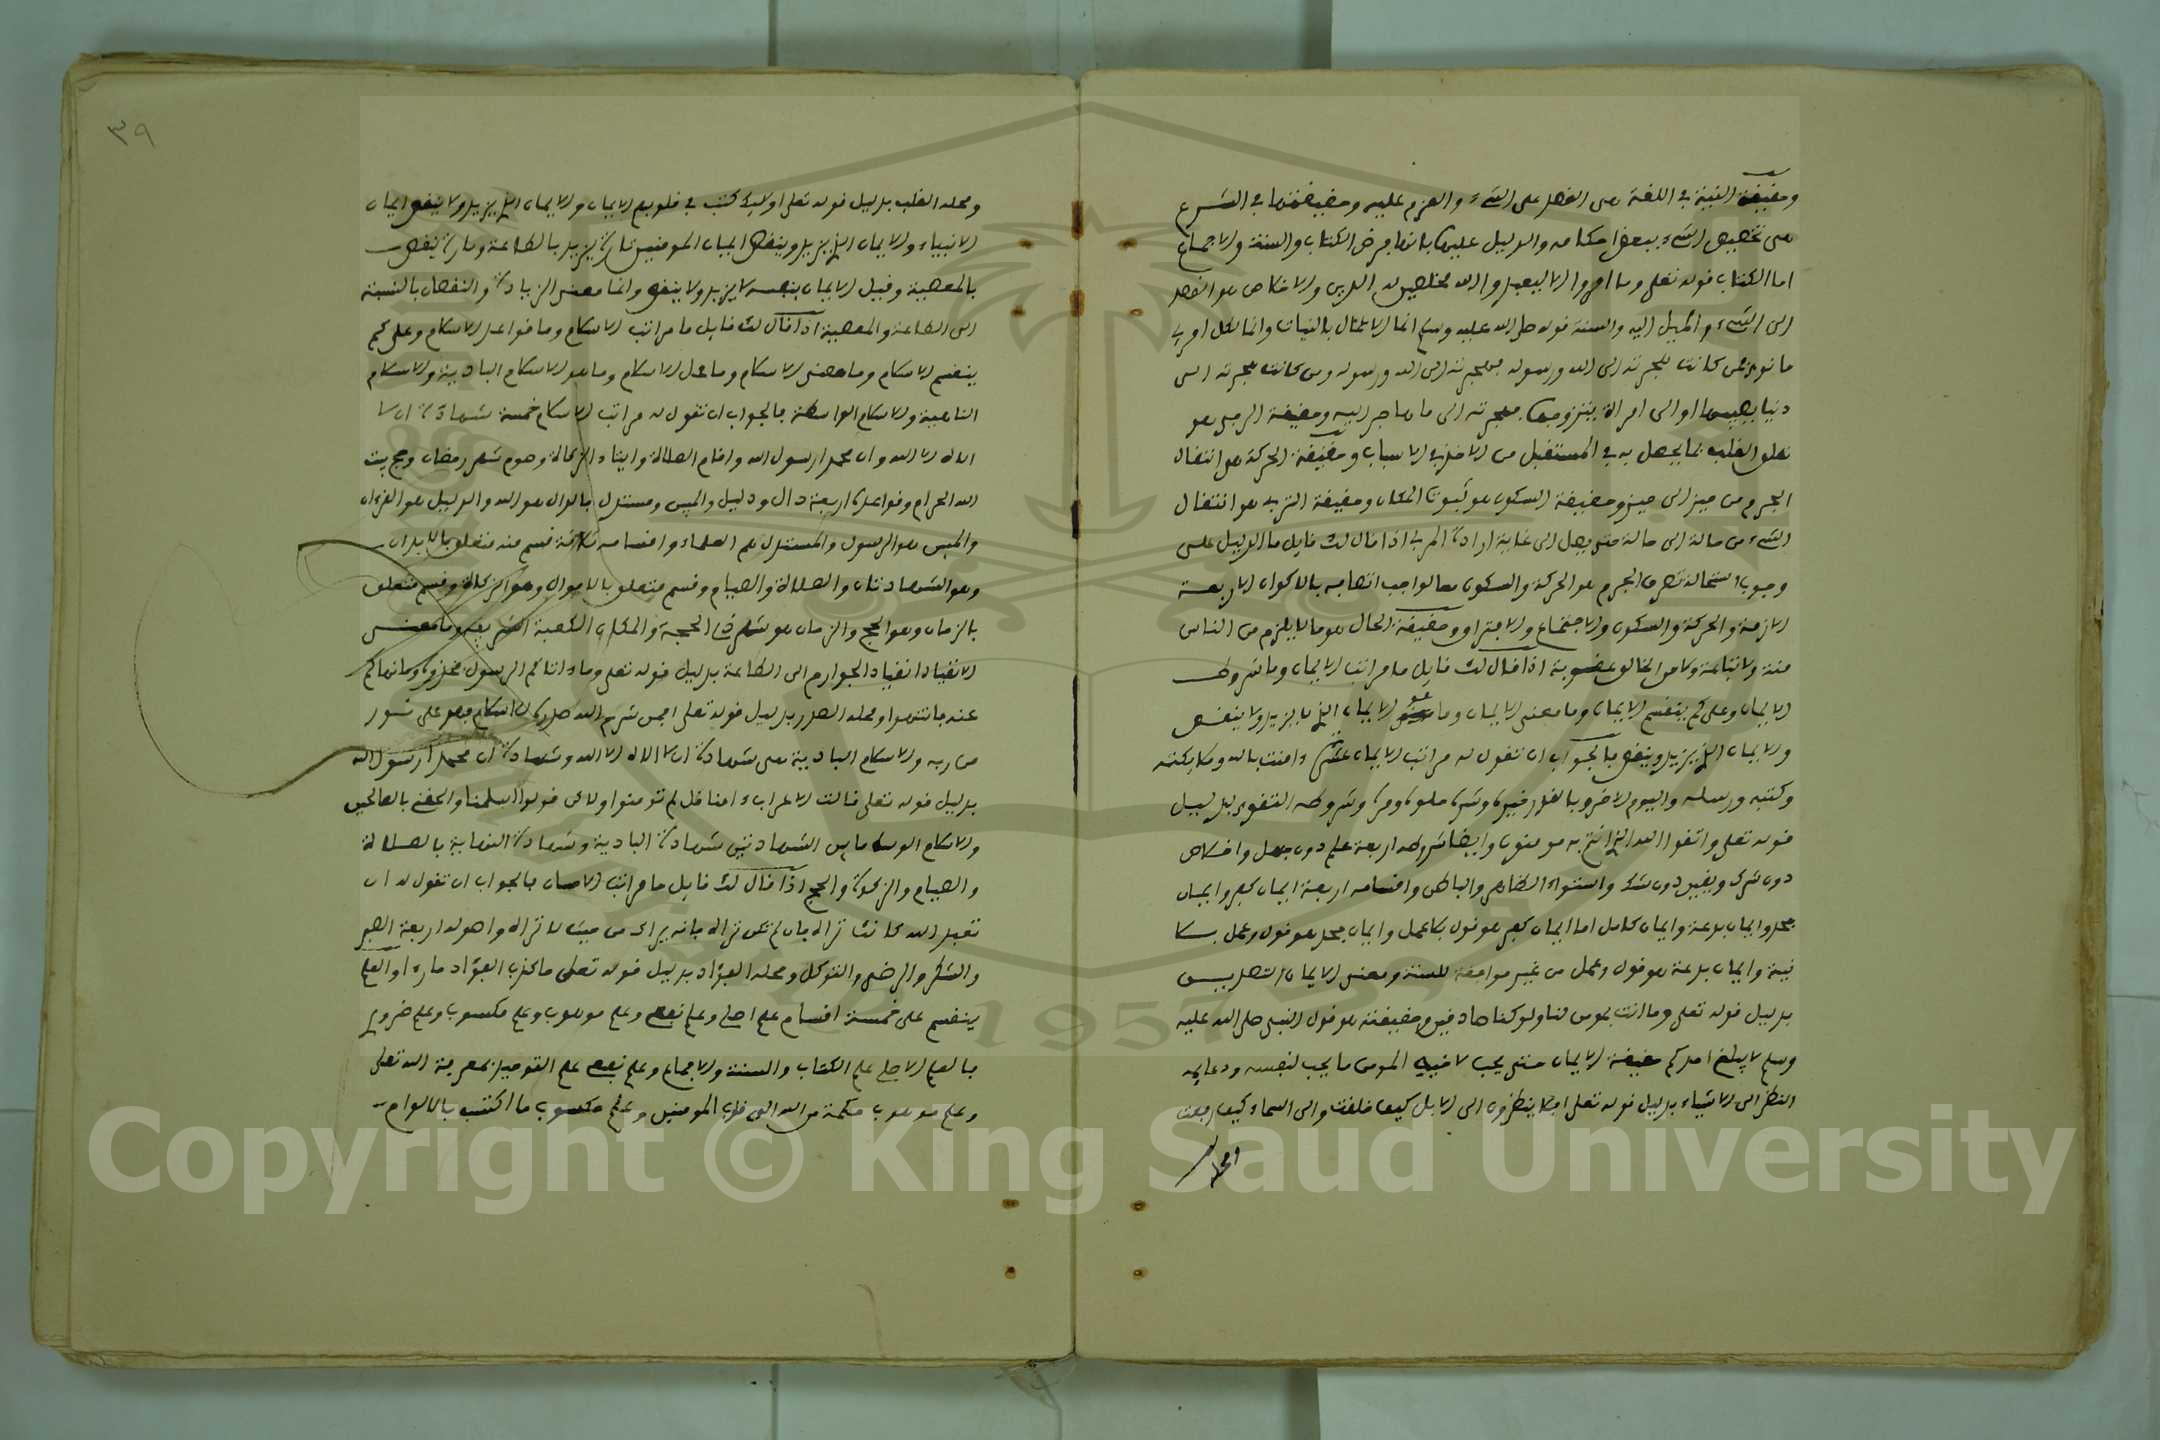 وحقيقة النية في اللغة هي القصد على الشيء والعزم عليه وحقيقتها في الشرع
هي تخصيص الشيء ببعض احكامه والدليل عليها بانها فرض الكتاب والسنة والاجماع
اما الكتاب قوله تعلى وما امروا الا ليعبدوا الله مخلصين له الدين والاخلاص هو القصد
الى الشيء والميل اليه والسنة قوله صلى الله عليه وسلم انما الاعمال بالنيات وانما لكل امرئ
ما نوى فمن كانت هجرته الى الله ورسوله فهجرته الى الله ورسوله ومن كانت هجرته الى
دنيا يصيبها او الى امراة يتزوجها فهجرته الى ما هاجر اليه وحقيقة الرجى هو
تعلق القلب بما يحصل به في المستقبل من الاخذ في الاسباب وحقيقة الحركة هو انتقال
الجرم من حيز الى حيز وحقيقة السكون هو ثبوت المكان وحقيقة التربة هو انتقال
الشيء من حالة الى حالة حتى يصل الى غاية ارادة المربي اذا قال لك قايل ما الدليل على
وجوب استحالة تعري الجرم هو الحركة والسكون فالواجب اتصافه بالاكوان الاربعة
الازمة والحركة والسكون والاجتماع والافتراق وحقيقة الحال هو مالا يلزم من الناس
منة ولا تباعة ولا من الخالق عقوبة اذا قال لك قايل ما مراتب الايمان وما شروط
الايمان وعلى كم ينقسم الايمان وما معنى الايمان وما هو الايمان الذي لا يزيد ولا ينقص
والايمان الذي يزيد وينقص فالجواب ان تقول له مراتب الايمان عشرة ءامنت بالله وملايكته
وكتبه ورسله واليوم الاخر وبالقدر خيره وشره حلوه ومره وشروطه التقوى بدليل
قوله تعلى واتقوا الله الذي انتم به مومنون وايضا شروطه اربعة علم دون جهل واخلاص
دون شرك ويقين دون شك واستواء الظاهر والباطن واقسامه اربعة ايمان كفر وايمان
جحد وايمان بدعة وايمان كامل اما ايمان كفر هو قول بلا عمل وايمان جحد هو قول وعمل بلا
نية وايمان بدعة هو قول وعمل من غير موافقة للسنة ومعنى الايمان التصديق
بدليل قوله تعلى وما انت بمومن لنا ولو كنا صادقين وحقيقته هو قول النبي صلى الله عليه
وسلم لا يبلغ احدكم حقيقة الايمان حتى يحب لاخيه المومن ما يحب لنفسه ودعايمه
النظر الى الاشياء بدليل قوله تعلى افلا ينظرون الى الابل كيف خلقت والى السماء كيف رفعت
٣٩
ومحله القلب بدليل قوله تعلى اوليك كتب في قلوبهم الايمان والايمان الذي يزيد ولا ينقص ايمان
الانبياء والايمان الذي يزيد وينقص ايمان المومنين تارة يزيد بالطاعة وتارة ينقص
بالمعصية وقيل الايمان بنفسه لا يزيد ولا ينقص وانما معنى الزيادة والنقصان بالنسبة
الى الطاعة والمعصية اذا قال لك قايل ما مراتب الاسلام وما قواعد الاسلام وعلى كم
ينقسم الاسلام وما معنى الاسلام وما محل الاسلام وما هو الاسلام البادية والاسلام
الناهية والاسلام الواسطة فالجواب ان تقول له مراتب الاسلام خمسة شهادة ان لا
اله الا الله وان محمدا رسول الله واقام الصلاة وايتاء الزكاة وصوم شهر رمضان وحج بيت
الله الحرام وقواعده اربعة دال ودليل والمبين ومستدل فالدال هو الله والدليل هو القرءان
والمبين هو الرسول والمستدل هم العلماء واقسامه ثلاثة قسم منه متعلق بالابدان
وهو الشهادتان والصلاة والصيام وقسم متعلق بالاموال وهو الزكاة وقسم متعلق
بالزمان وهو الحج والزمان هو شهر ذي الحجة والمكان الكعبة الشريفة وما معنى
الانقياد انقياد الجوارح الى الطاعة بدليل قوله تعلى وما ءاتاكم الرسول فخذوه وما نهاكم
عنه فانتهوا ومحله الصدر بدليل قوله تعلى افمن شرح الله صدره للاسلام فهو على نور
من ربه والاسلام البادية هي شهادة ان لا اله الا الله وشهادة ان محمدا رسول الله
بدليل قوله تعلى قالت الاعراب ءامنا قل لم تومنوا ولاكن قولوا اسلمنا والحقني بالصالحين
والاسلام الوسط ما بين الشهادتين شهادة البادية وشهادة النهاية بالصلاة
والصيام والزكوة والحج اذا قال لك قايل ما مراتب الاحسان فالجواب ان تقول له ان
تعبد الله كانك تراه فان لم تكن تراه فانه يراك من حيث لا تراه واصوله اربعة الصبر
والشكر والرضى والتوكل ومحله الفؤاد بدليل قوله تعلى ما كذب الفؤاد ما رءا والعلم
ينقسم على خمسة اقسام علم اصلي وعلم نفعي وعلم موهوب وعلم مكسوب وعلم ضروري
فالعلم الاصلي علم الكتاب والسنة والاجماع وعلم نفعي علم التوحيد بمعرفة الله تعلى
وعلم موهوب حكمة من الله الى قلب المومنين وعلم مكسوب ما اكتسب بالالواح
Copyright © King Saud University
1957